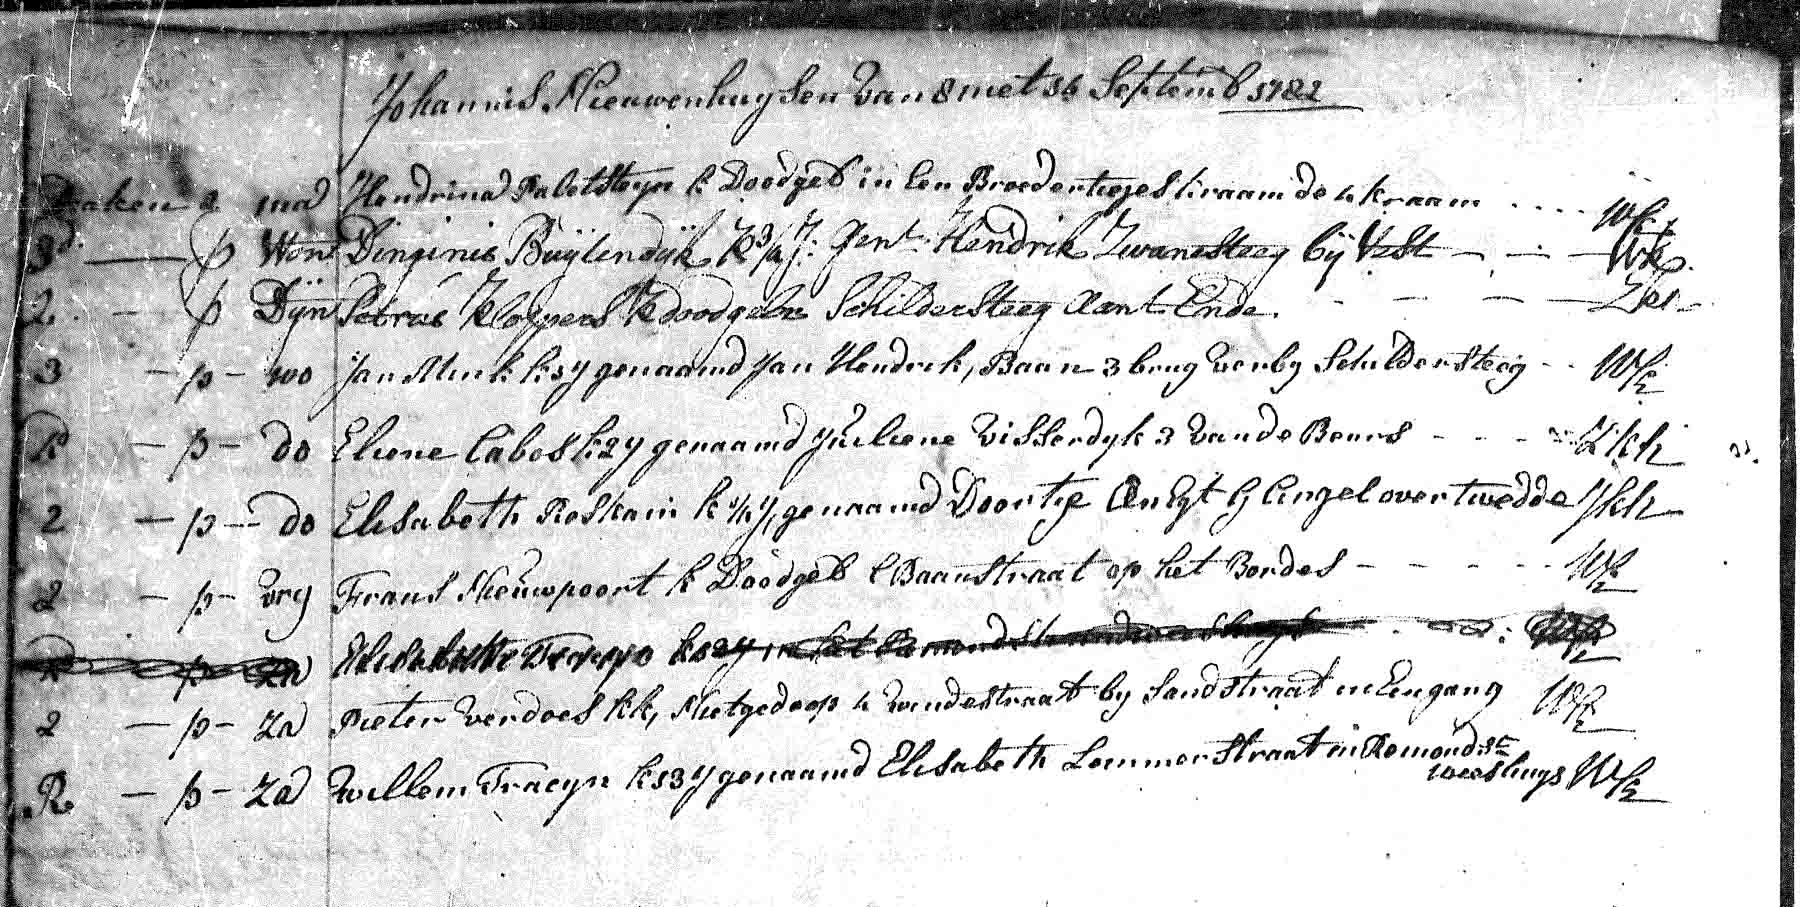 Johannis Nieuwenhuysen van 8 met 16 Septemb 1782
ma Hendrina Paletsteyn k Doodgeb in Een Broedertiejes kraam de 4 kraam
3 p Won Dinginis Buÿtendÿk K 3/4 J: Gent Hendrik Zwanesteeg bÿ Vest
2 p Dÿn Petrus Kloppers K doodgebn Schildersteeg aant Ende.
3 - p - wo Jan Munk k 1 y genaamd Jan Hendrik, Baan 3 brug verby Schildersteeg W/z
R - p - do k 2 y genaamd Visserdyk 3 van de Beurs Zkh
2 - p - do Elisabeth Roskam k genaamd Doortie Cingel over twedde
2 - p - vry Frans Nieuwpoort k Doodgeb Baanstraat op het Bordes W/z
p za Elisabeth
2 - p - za Pieter Verdoes kk, Nietgedoop 4 vandestraat by Sandstraat in Eengang W/z
R - p - za Willem Tracyn k 13 y genaamd Elisabeth Lommerstraat in Remond st
weeshuys W/z